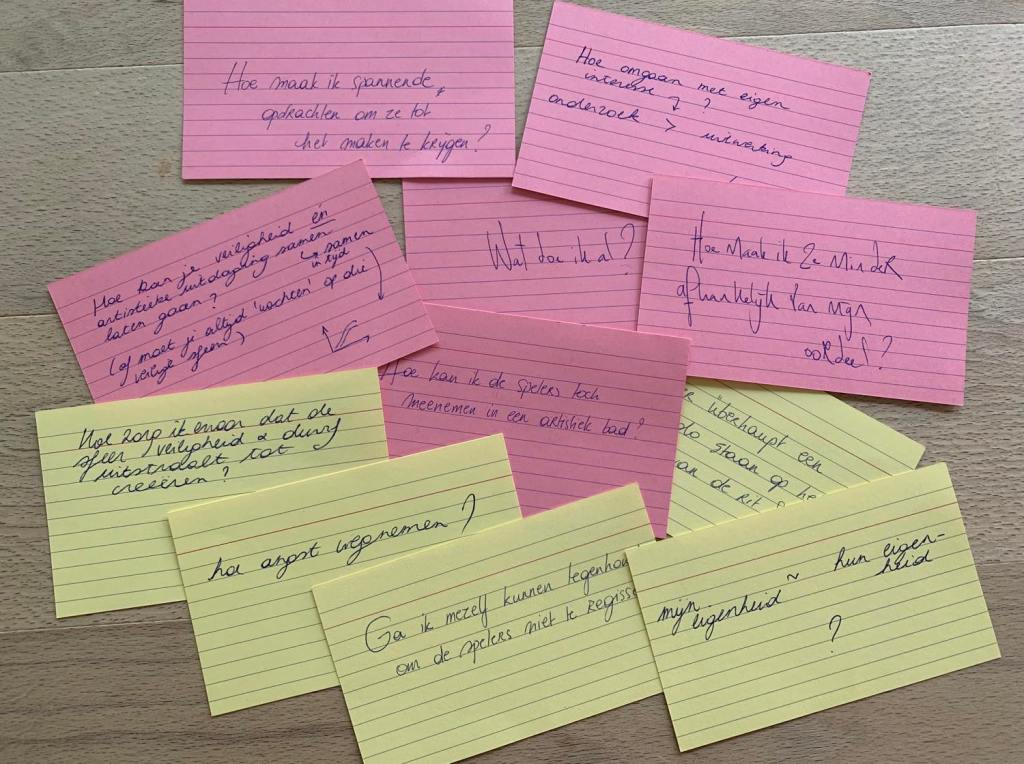 Hoe maak ik spannende
opdrachten om ze tot
het maken te krijgen?
Hoe omgaan met eigen
interesse ?
onderzoek > uitwerking
Hoe kan je veiligheid én
artistieke uitdaging samen
laten gaan?
↳ samen
in tijd
(of moet je altijd 'wachten' op die
veilige sfeer)
Wat doe ik al?
Hoe maak ik ze minder
afhankelijk van mijn
oordeel?
Hoe kan ik de spelers toch
meenemen in een artistiek bad?
Hoe zorg ik ervoor dat de
sfeer veiligheid & durf
uitstraalt tot
creëeren?
hoe angst wegnemen?
überhaupt een
staan op
de rit
Ga ik mezelf kunnen
om de spelers niet te
mijn
eigenheid ~ hun eigen-
heid
?